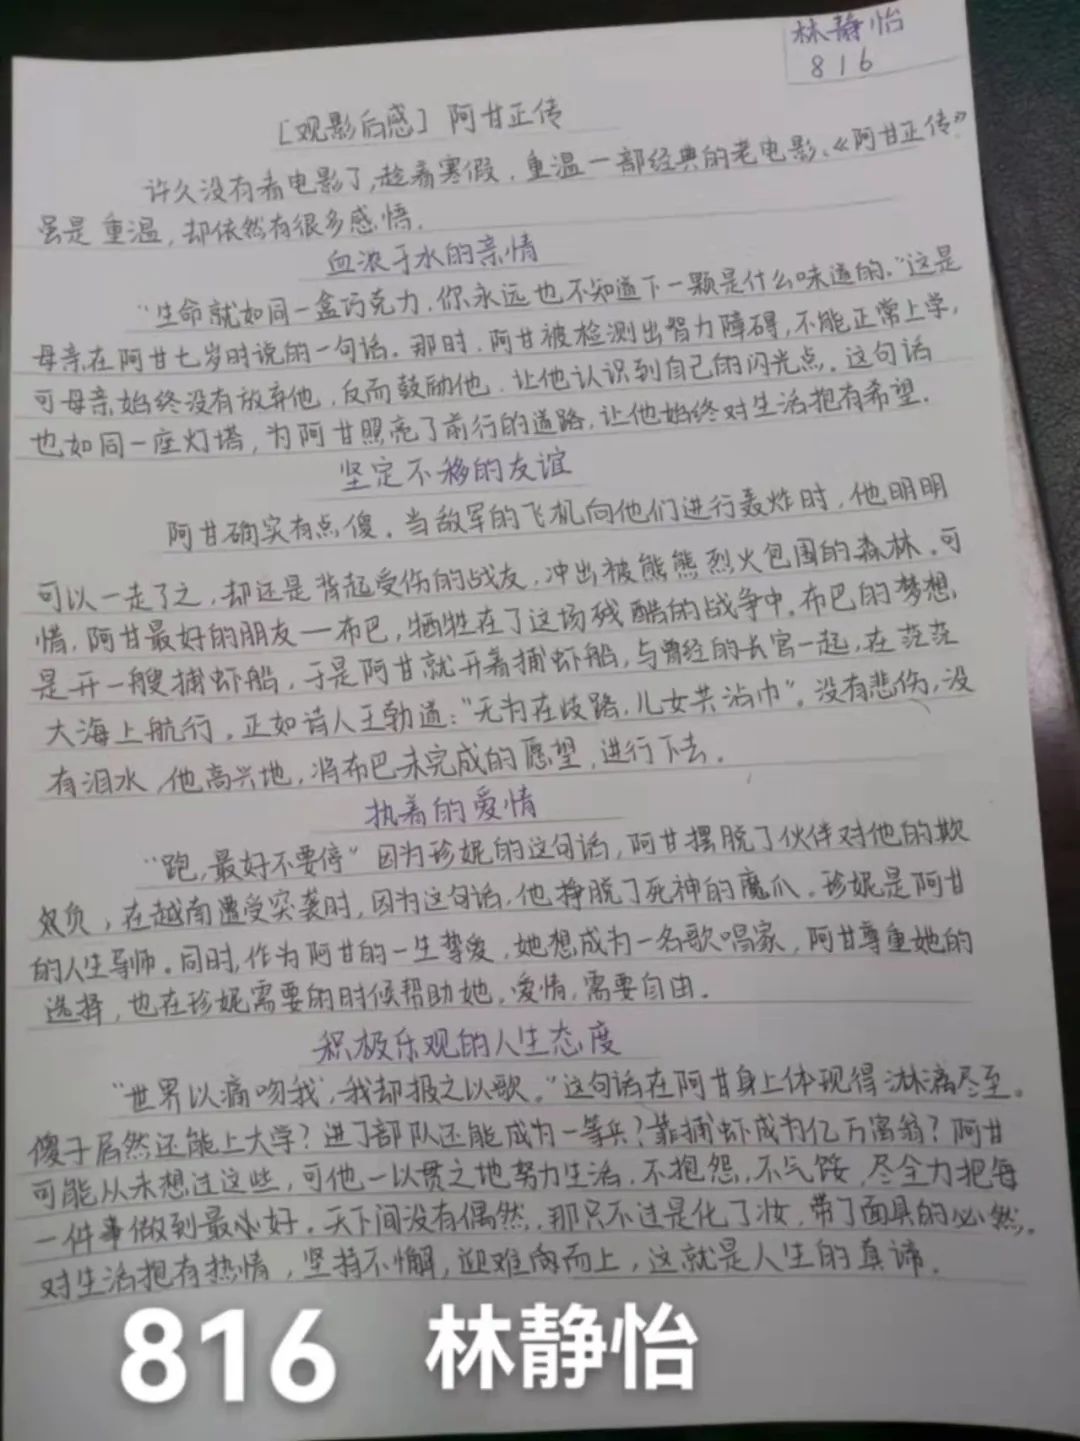 林静怡
816
[观影后感] 阿甘正传
许久没有看电影了,趁着寒假,重温一部经典的老电影、《阿甘正传》
虽是重温,却依然有很多感悟.
血浓于水的亲情
"生命就如同一盒巧克力,你永远也不知道下一颗是什么味道的."这是
母亲在阿甘七岁时说的一句话。那时,阿甘被检测出智力障碍,不能正常上学,
可母亲始终没有放弃他,反而鼓励他,让他认识到自己的闪光点。这句话
也如同一座灯塔,为阿甘照亮了前行的道路,让他始终对生活抱有希望.
坚定不移的友谊
阿甘确实有点傻。当敌军的飞机向他们进行轰炸时,他明明
可以一走了之,却还是背起受伤的战友,冲出被熊熊烈火包围的森林。可
惜,阿甘最好的朋友—布巴,牺牲在了这场残酷的战争中。布巴的梦想,
是开一艘捕虾船,于是阿甘就开着捕虾船,与曾经的长官一起,在茫茫
大海上航行。正如诗人王勃道:"无为在歧路,儿女共沾巾"。没有悲伤,没
有泪水,他高兴地,将布巴未完成的愿望,进行下去.
执着的爱情
"跑,最好不要停"因为珍妮的这句话,阿甘摆脱了伙伴对他的欺
负,在越南遭受突袭时,因为这句话,他挣脱了死神的魔爪。珍妮是阿甘
的人生导师。同时,作为阿甘的一生挚爱,她想成为一名歌唱家,阿甘尊重她的
选择,也在珍妮需要的时候帮助她,爱情,需要自由.
积极乐观的人生态度
"世界以痛吻我,我却报之以歌."这句话在阿甘身上体现得淋漓尽至。
傻子居然还能上大学?进了部队还能成为一等兵?靠捕虾成为亿万富翁?阿甘
可能从未想过这些,可他一以贯之地努力生活,不抱怨,不气馁,尽全力把每
一件事做到最好。天下间没有偶然,那只不过是化了妆,带了面具的必然。
对生活抱有热情,坚持不懈,迎难而上,这就是人生的真谛.
816 林静怡